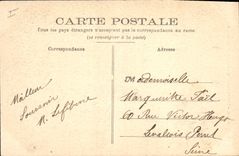 CARTE POSTALE
Tous les pays étrangers n'acceptent pas la correspondance au recto
(se renseigner à la poste)
Correspondance
Adresse
Meilleur
Souvenir
M. Lefebvre
Mademoiselle
Marguerite
60 Rue Victor Hugo
Levallois Perret
Seine